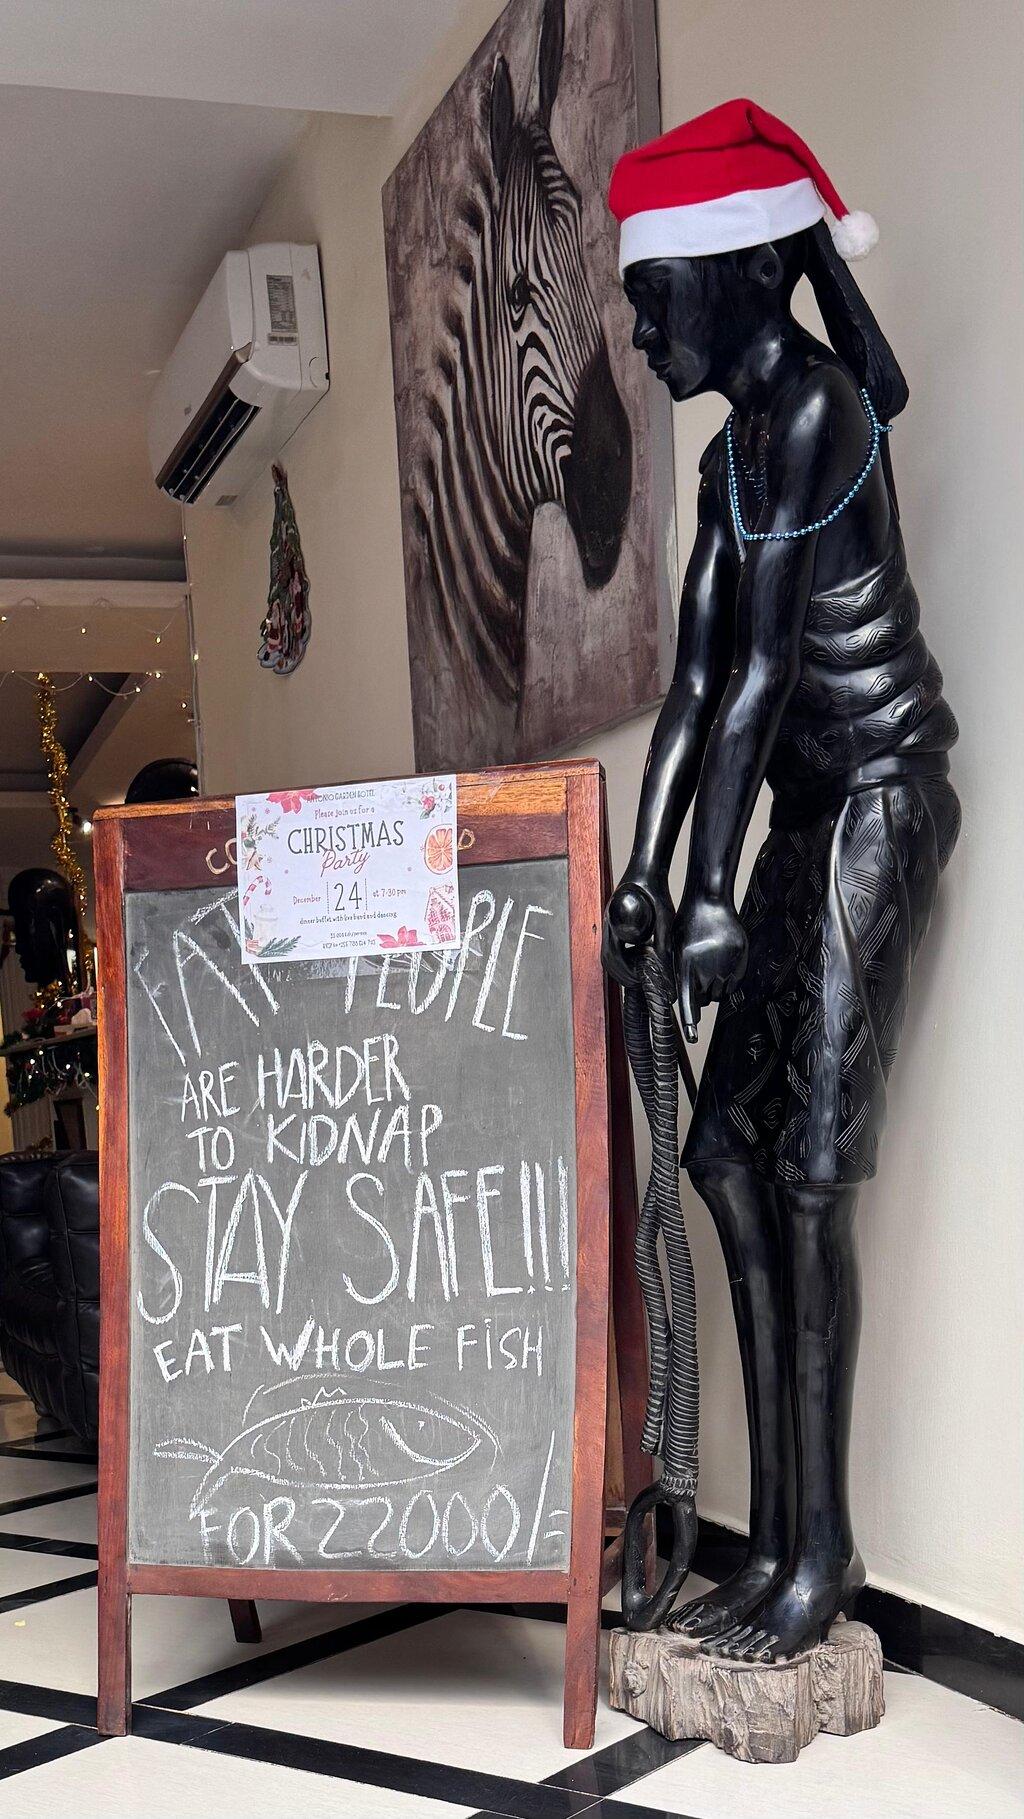 ANTONIO GARDEN HOTEL
Please join us for a
CHRISTMAS
Party
December 24 at 7:30 pm
dinner buffet with live band and dancing
FAT PEOPLE
ARE HARDER
TO KIDNAP
STAY SAFE!!!
EAT WHOLE FiSH
FOR 22000/=